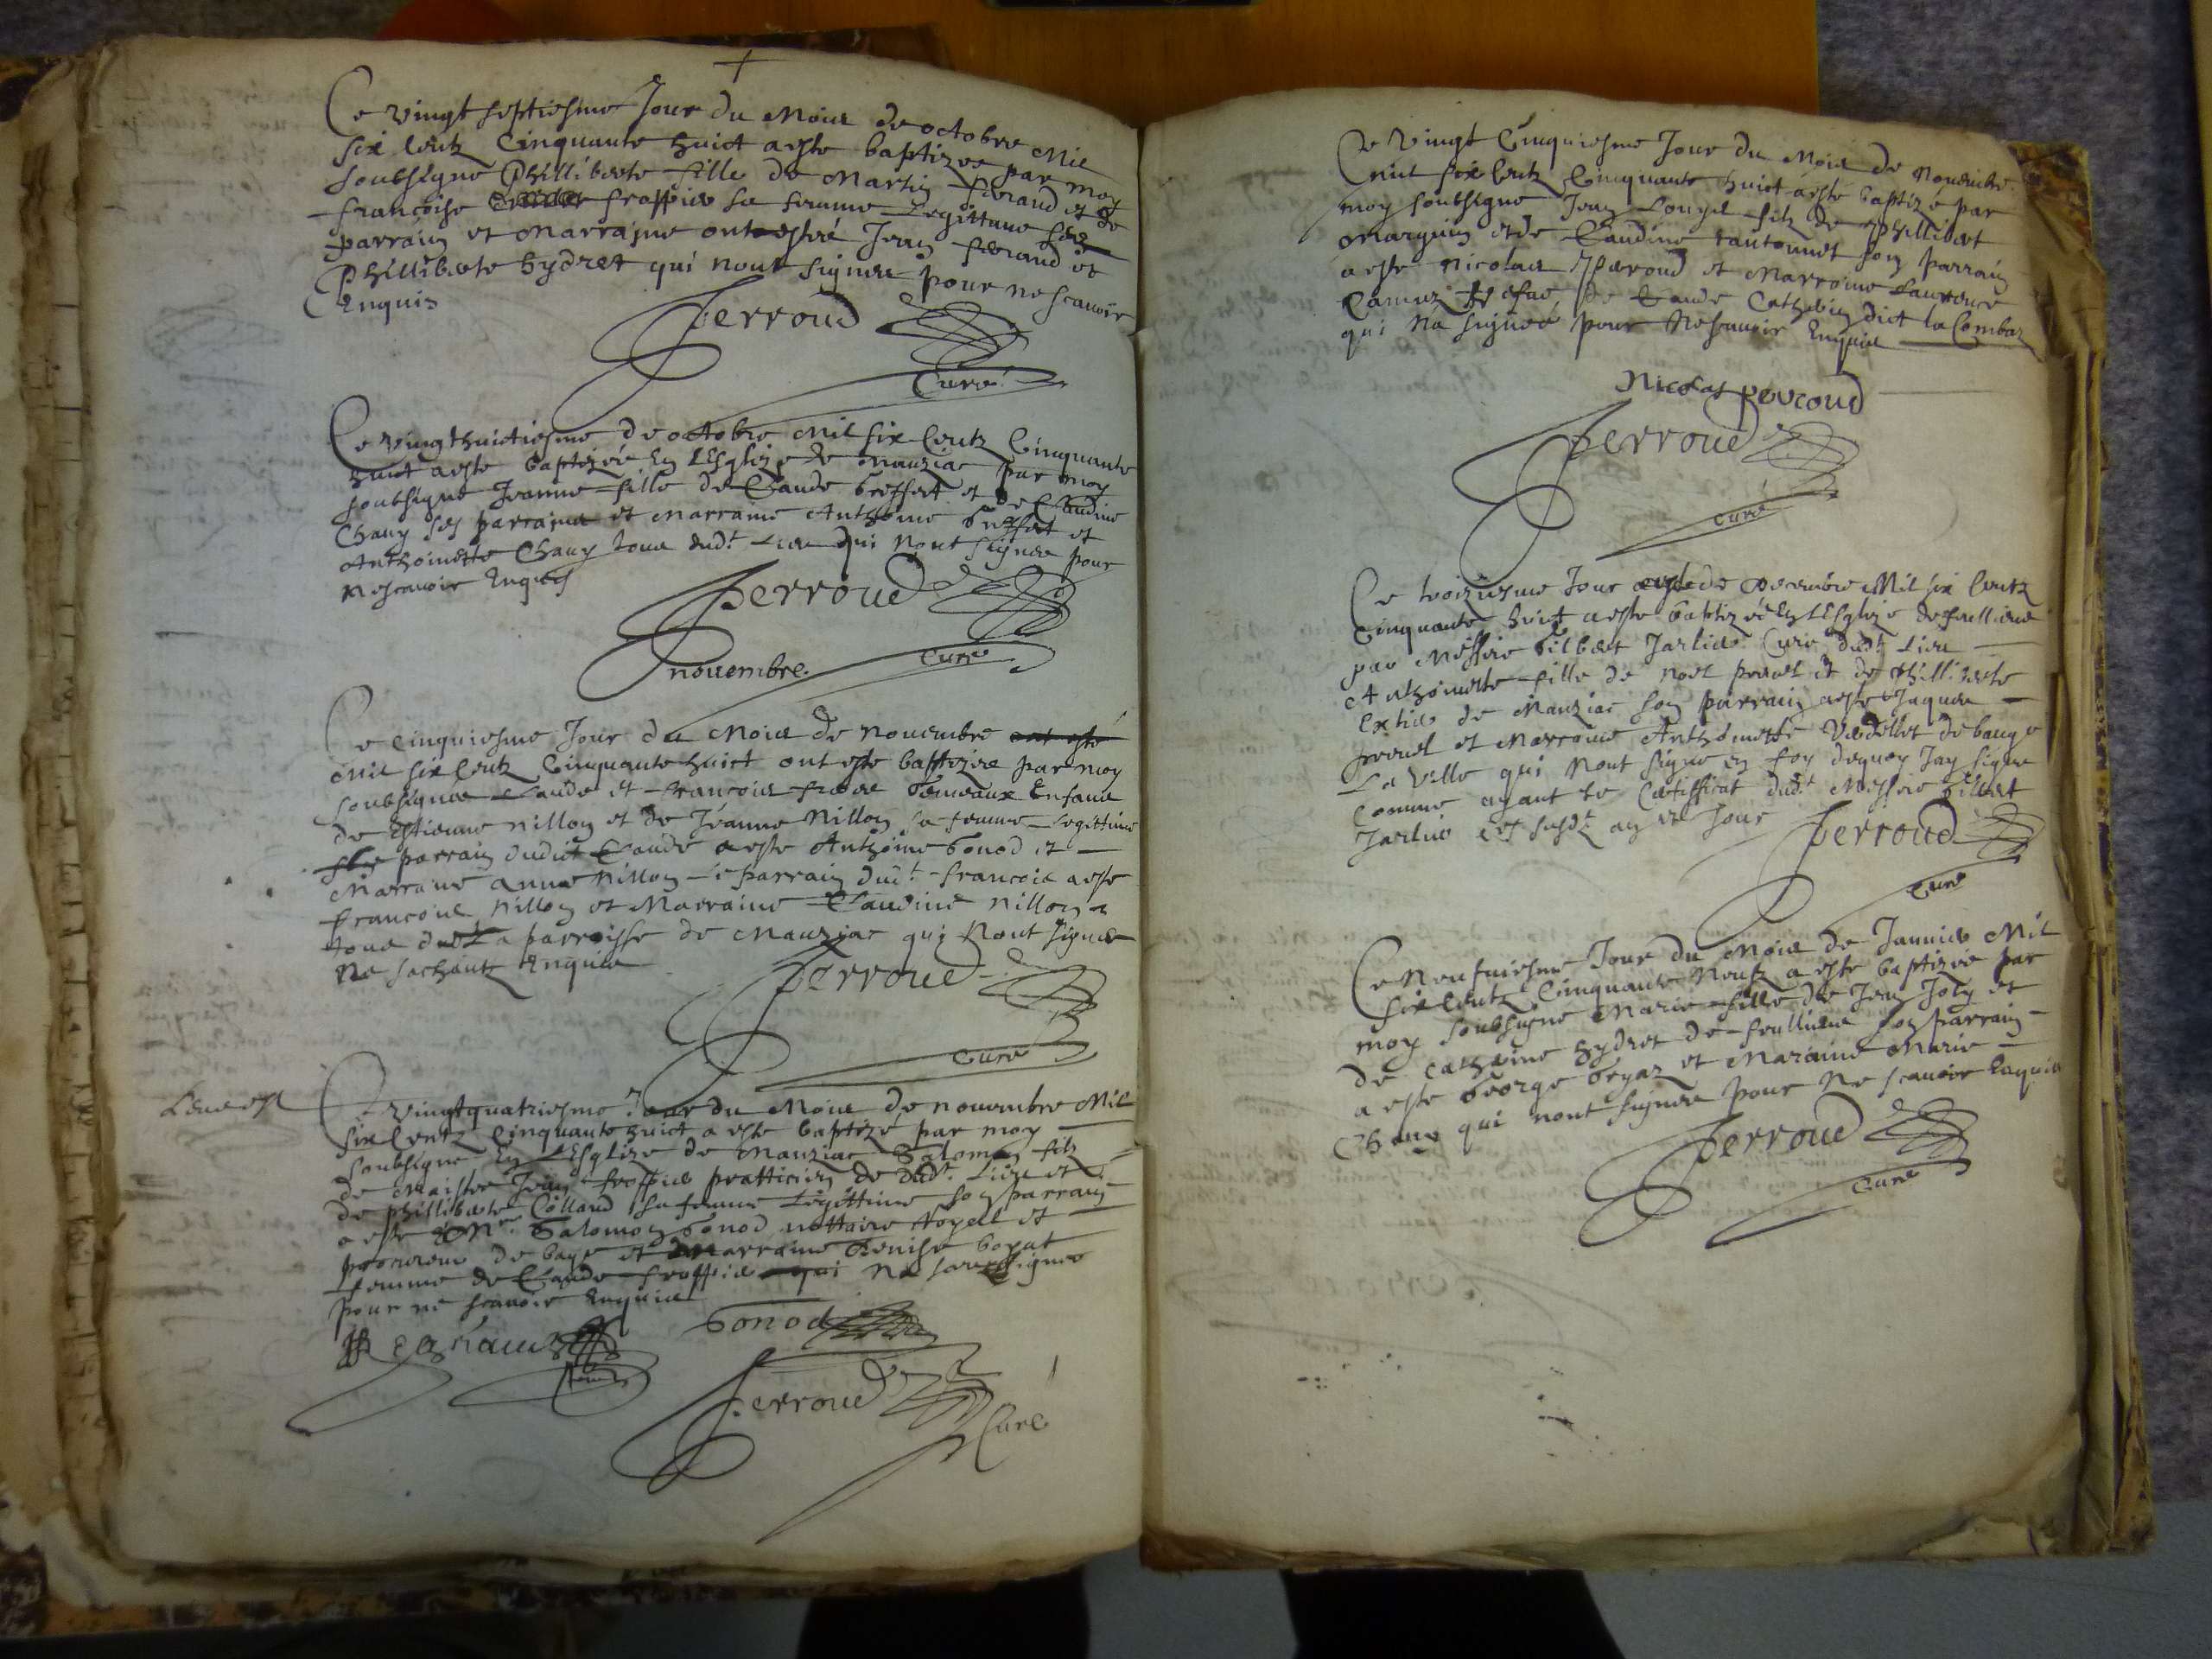 Ce vingt septiesme Jour du Mois de octobre Mil
six Centz Cinquante huict a este baptizee par moy
soubsigne Phillibarte fille de Martin feraud et de
francoise froppier sa femme Legittime
parrain et Marrayne ont esté Jean feraud et
Phillibarte hydret qui nont signer pour ne scauoir
Enquis
Perroud
Curé
Ce vingt huictiesme de octobre Mil six Centz Cinquante
huict a este baptizée En LEsglize de Mauziac par moy
soubsigné Jeanne fille de Claude et de Claudine
Chany ses parrains et Marraine Anthoine et
Anthoinette Chany tous dudt Lieu qui nont signer pour
ne scauoir Enques
Perroud
Curé
nouembre.
Ce cinquiesme Jour du Mois de nouembre ont esté
Mil six Centz Cinquante huict ont este baptizes par moy
soubsignes Claude et francois freres Gemeaux Enfans
de Estienne nillon et de Jeanne Nillon sa femme Legittime
parrain dudict Claude a este Anthoine Gonod et
Marraine Anne Nillon parrain dudt francois a este
francois Nillon et Marraine Claudine nillon
tous de La parroisse de Mauziac qui Nont signer
Ne sachantz Enquis
Perroud
Curé
Ce vingtquatriesme Jour du Mois de nouembre Mil
six Centz Cinquante huict a este baptizé par moy
soubsigne En LEsglize de Mauziac Salomon filz
de Maistre Jean froppier pratticien de dudt Lieu et
de phillibarte Colland sa femme Legittime son parrain
a este Mre Salomon Gonod nottaire Royal et
procureur de bage et Marraine Denise boyat
femme de Claude froppier qui Na signer
pour ne scauoir Enquis
Gonod
Perroud
Curé
Ce Vingt Cinquiesme Jour du Mois de Nouembre
Mil six Centz Cinquante huict a esté baptizé par
moy soubsigne Jean Louys filz de Phillibert
Marguin et de Claudine son parrain
a este Nicolas Perroud et Marraine Laurence
Camuz de Claude Cathelin dict la Combaz
qui Na signee pour Ne scauoir Enquis
Nicolas perroud
Perroud
Curé
Ce troiziesme Jour de Decembre Mil six Centz
Cinquante huict a este baptizée En LEsglize de feullens
par Messire Gilbert Jarlier Curé dudt Lieu
Anthoinette fille de Noel preuel et de Phillibarte
de Mauziac son parrain a este Jaques
preuel et Marraine Anthoinette de bauge
La Ville qui Nont signe en foy dequoy Jay signe
Comme ayant Le Certifficat dudt Messire Gilbert
Jarlier Les susdt an et Jour
Perroud
Curé
Ce Neufuiesme Jour du Mois de Januier Mil
six Centz Cinquante Neufz a este baptizée par
moy soubsigne Marie fille de Jean Joly et
de Catherine hydret de feullens son parrain
a este George et Maraine Marie
Chany qui nont signer pour Ne scauoir Enquis
Perroud
Curé